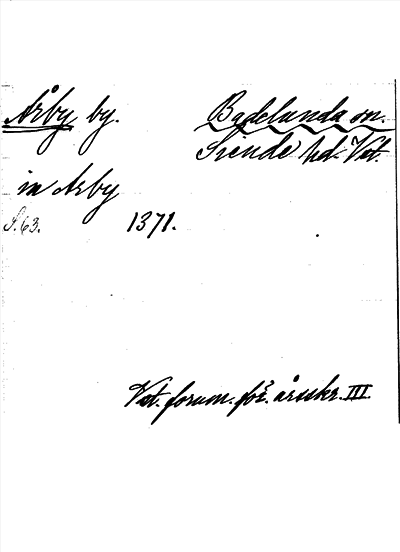 Årby by. Badelunda sn.
Siende hd. Vst.
in Arby
S. 63. 1371.
Vst. fornm. för. årsskr. III